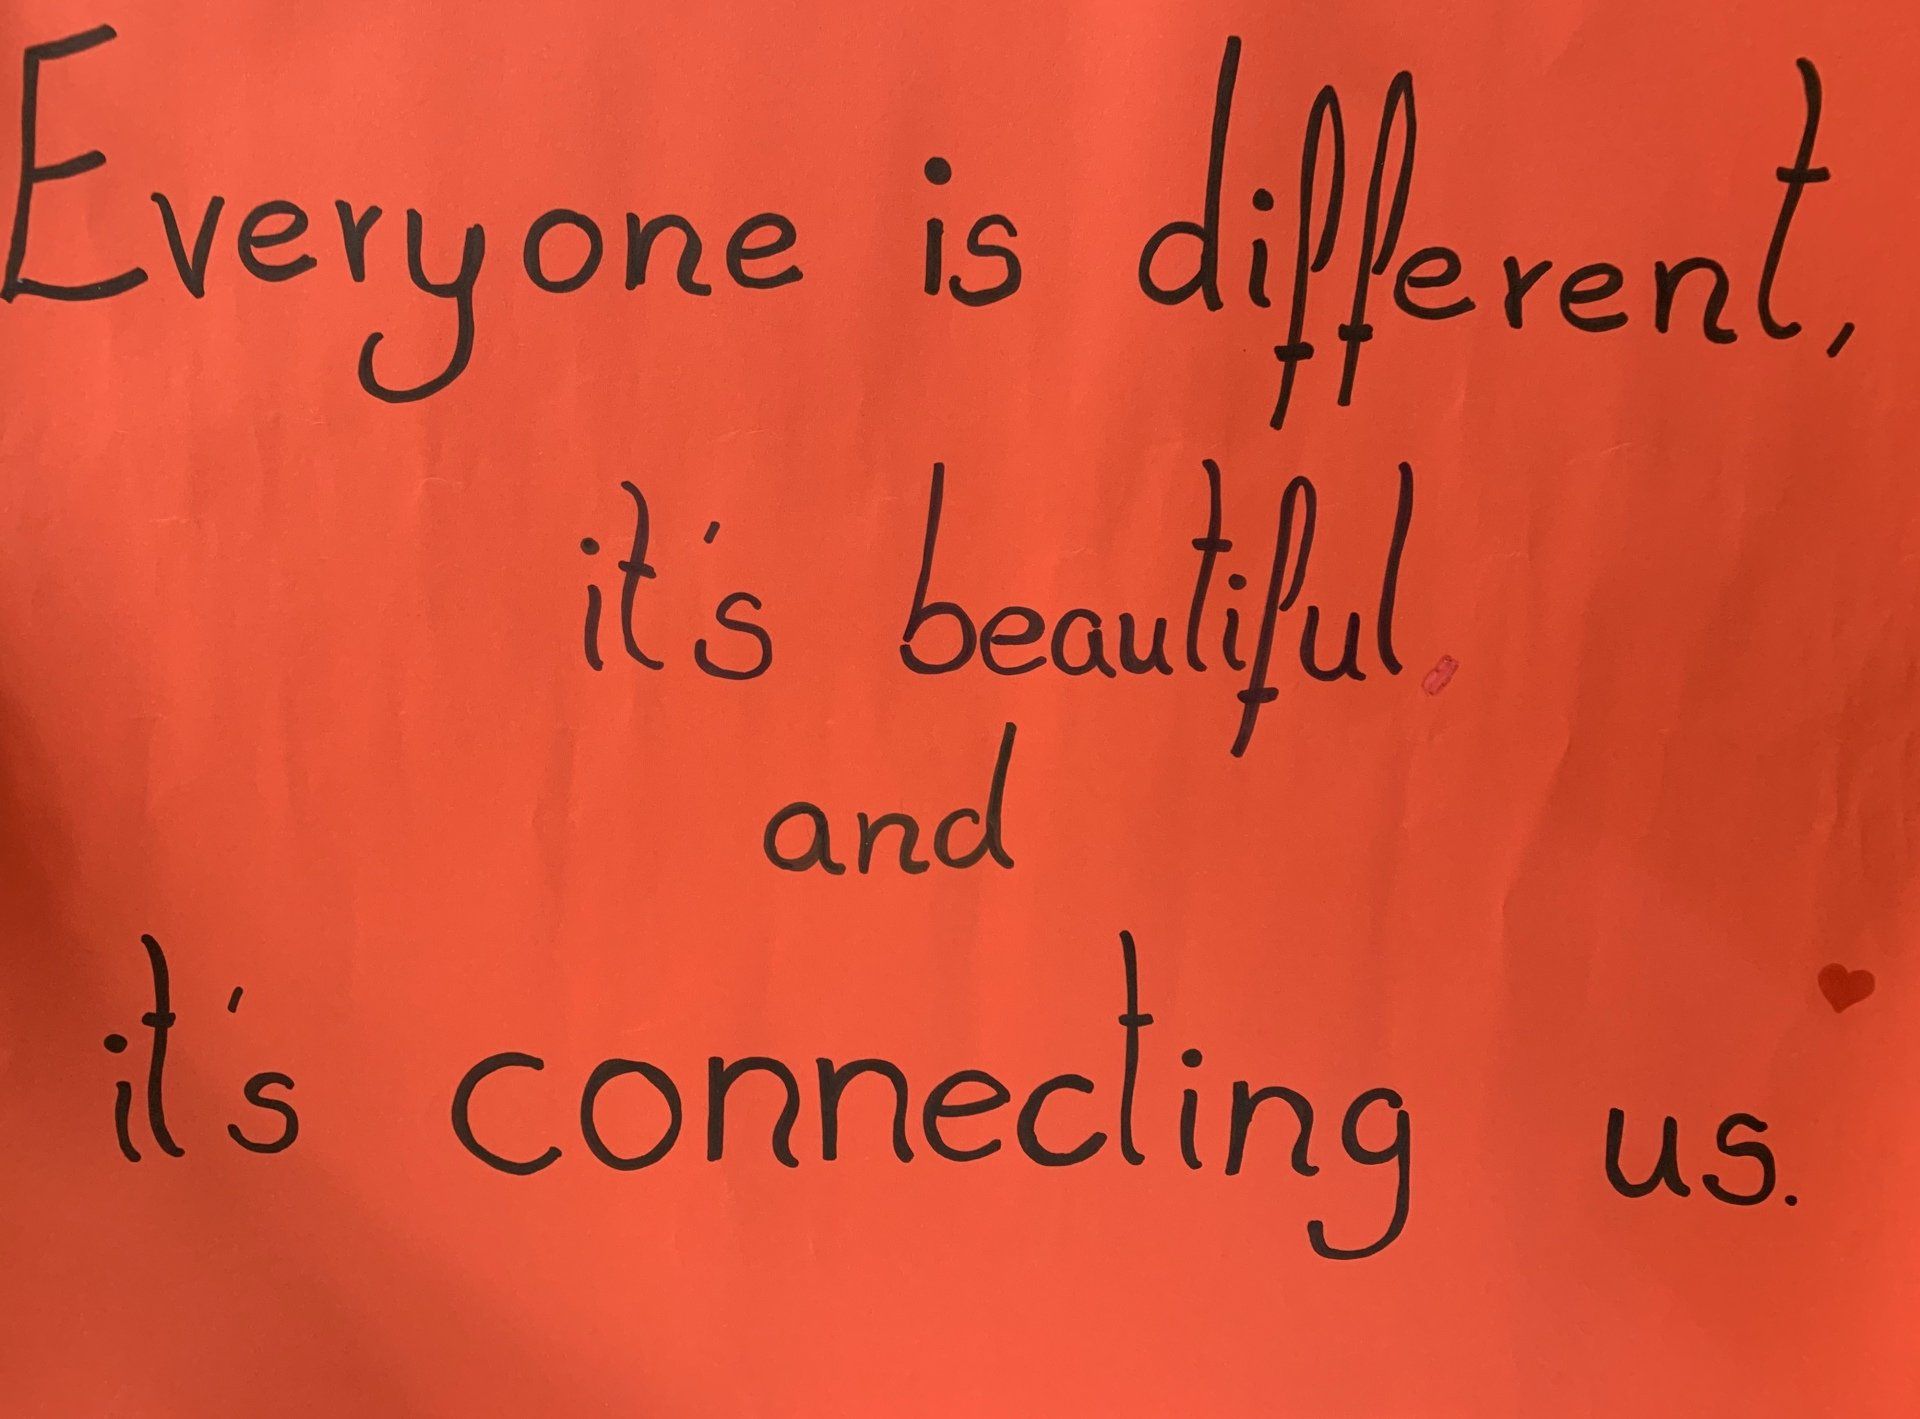 Everyone is different,
it's beautiful
and
it's connecting us.